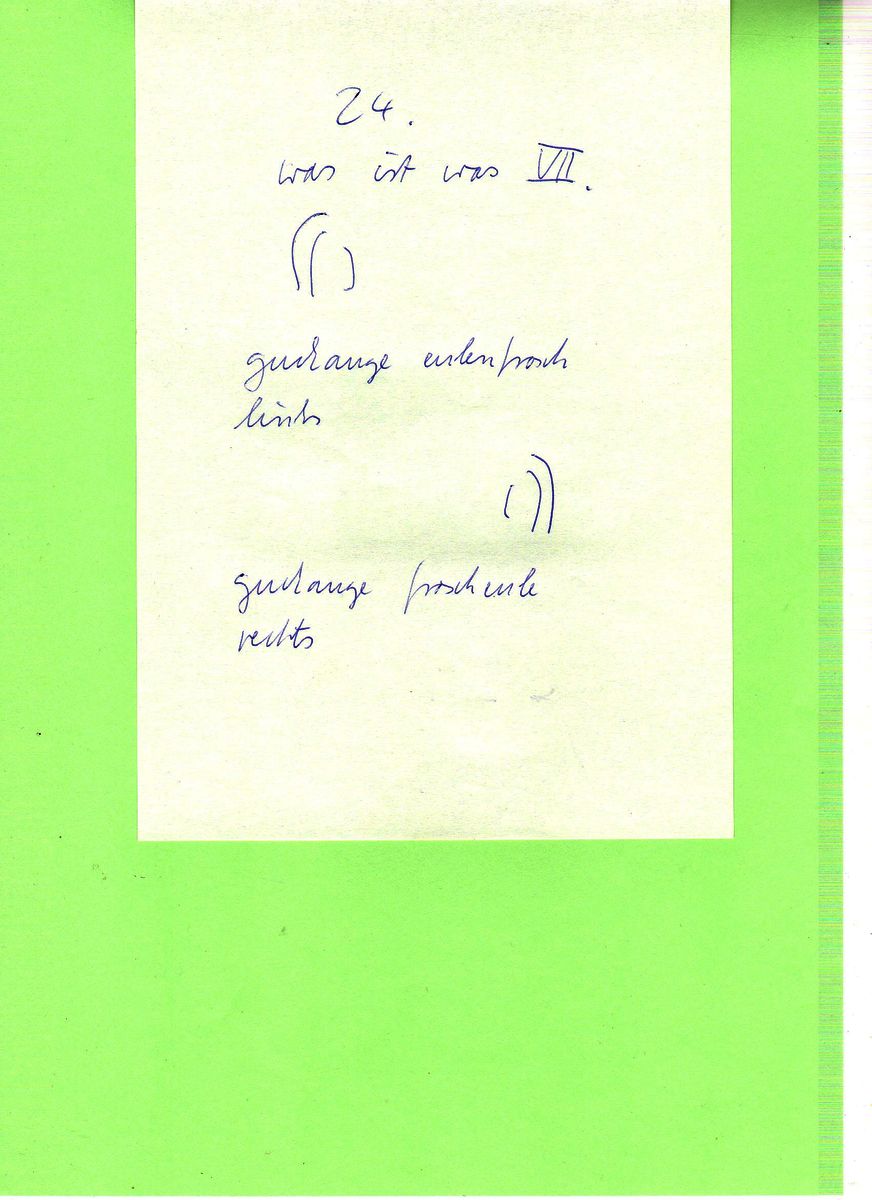 24.
was ist was VII.
(()
guckauge eulenfrosch
links
())
guckauge froscheule
rechts